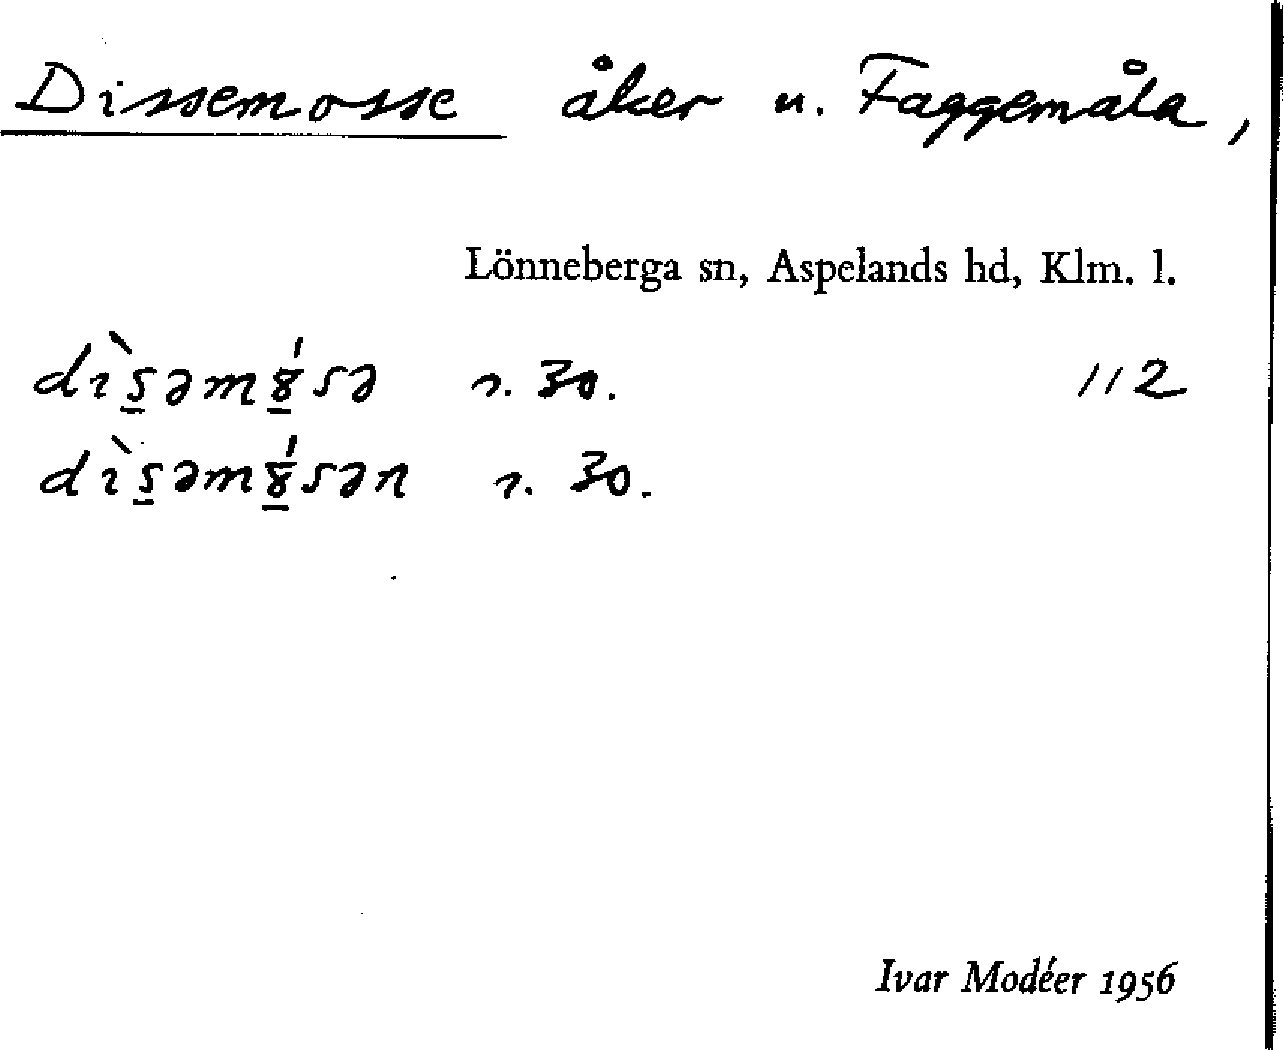 Dissemosse åker u. Faggemåla,
Lönneberga sn, Aspelands hd, Klm. l.
dɩ̀s̱əmȣ̱́sə s. 30. 112
dɩ̀s̱əmȣ̱́sən s. 30.
Ivar Modéer 1956